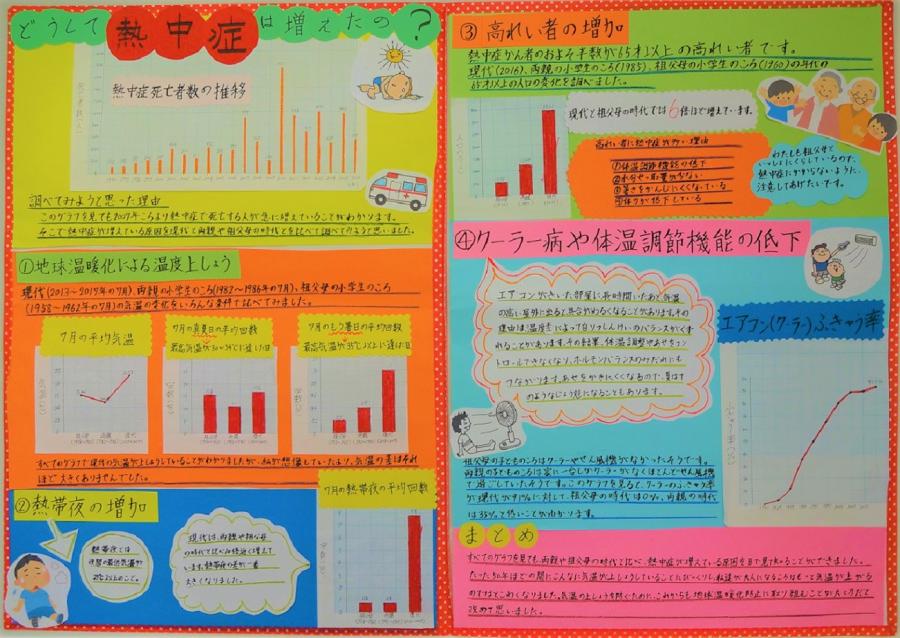 どうして熱中症は増えたの？
熱中症死亡者数の推移
調べてみようと思った理由
このグラフを見ても2007年ころより熱中症で死亡する人が急に増えていることがわかります。
そこで熱中症が増えている原因を現代と両親や祖父母の時代とを比べて調べてみようと思いました。
①地球温暖化による温度上しょう
現代(2013～2017年の7月)、両親の小学生のころ(1982～1986年の7月)、祖父母の小学生のころ
(1958～1962年の7月)の気温の変化をいろんな条件で比べてみました。
7月の平均気温
7月の真夏日の平均回数
最高気温が30～34℃に達した日
7月のもう暑日の平均回数
最高気温が35℃以上に達した日
すべてのグラフで現代の気温が上しょうしていることがわかりましたが、私が想像していたより、気温の差はそれ
ほど大きくありませんでした。
②熱帯夜の増加
熱帯夜とは
夜間の最低気温が
25℃以上のこと。
現代は、両親や祖父母
の時代と比べ4倍近く増えて
います。熱帯夜の差が一番
大きくなりました。
7月の熱帯夜の平均回数
③高れい者の増加
熱中症かん者のおよそ半数が65才以上の高れい者です。
現代(2016)、両親の小学生のころ(1985)、祖父母の小学生のころ(1960)の年代の
65才以上の人口の変化を調べました。
現代と祖父母の時代では6倍ほど増えています。
高れい者に熱中症が多い理由
①体温調節機能の低下
②水分や摂取量が少ない
③暑さをかんじにくくなっている
④体力が低下している
わたしも祖父母と
いっしょにくらしているので、
熱中症にかからないように、
注意してあげたいです。
④クーラー病や体温調節機能の低下
エアコンがきいた部屋に長時間いたあと、気温
の高い屋外に出ると具合がわるくなることがあります。その
理由は、温度差によって自りつしんけいのバランスがくず
れることがあります。その結果、体温調整やあせをコン
トロールできなくなり、ホルモンバランスのみだれにも
つながります。あせをかきにくくなるので、夏はす
エアコン(クーラー)ふきゅう率
祖父母の子どものころはクーラーやせん風機がなかったそうです。
両親の子どものころは家に一台しかクーラーがなくほとんどせん風機
で過ごしていたそうです。このグラフを見ると、クーラーのふきゅう率
が現代が91%に対して、祖父母の時代は0%、両親の時代
は35%と低いことが分かります。
まとめ
すべてのグラフを見ても、両親や祖父母の時代と比べ、熱中症が増えている原因を目で見て知ることができました。
たった50年ほどの間にこんなに気温が上しょうしていることにびっくりし、私達が大人になるころはもっと気温が上がる
のではとこわくなりました。気温の上しょうを防ぐために、これからも地球温暖化防止に取り組むことが大切だと
改めて思いました。